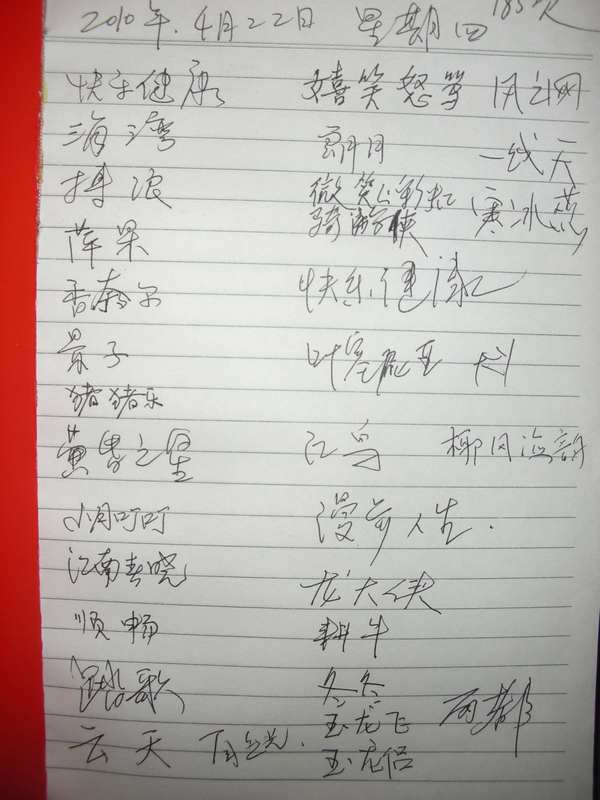 2010年.4月22日 星期四 185次
快乐健康 嬉笑怒骂 风之网
海湾 朗月 一线天
搏浪 微笑心彩虹 寒冰燕
骑游侠
苹果
香奈尔 快乐健
景子 叶塞尼亚
猪猪乐
黄昏之星 江鸟 柳月
小月叮叮 漫步人生.
江南春晓 龙大侠
顺畅 耕牛
踏歌 冬冬
玉龙飞 雨都
云天 玉龙侣